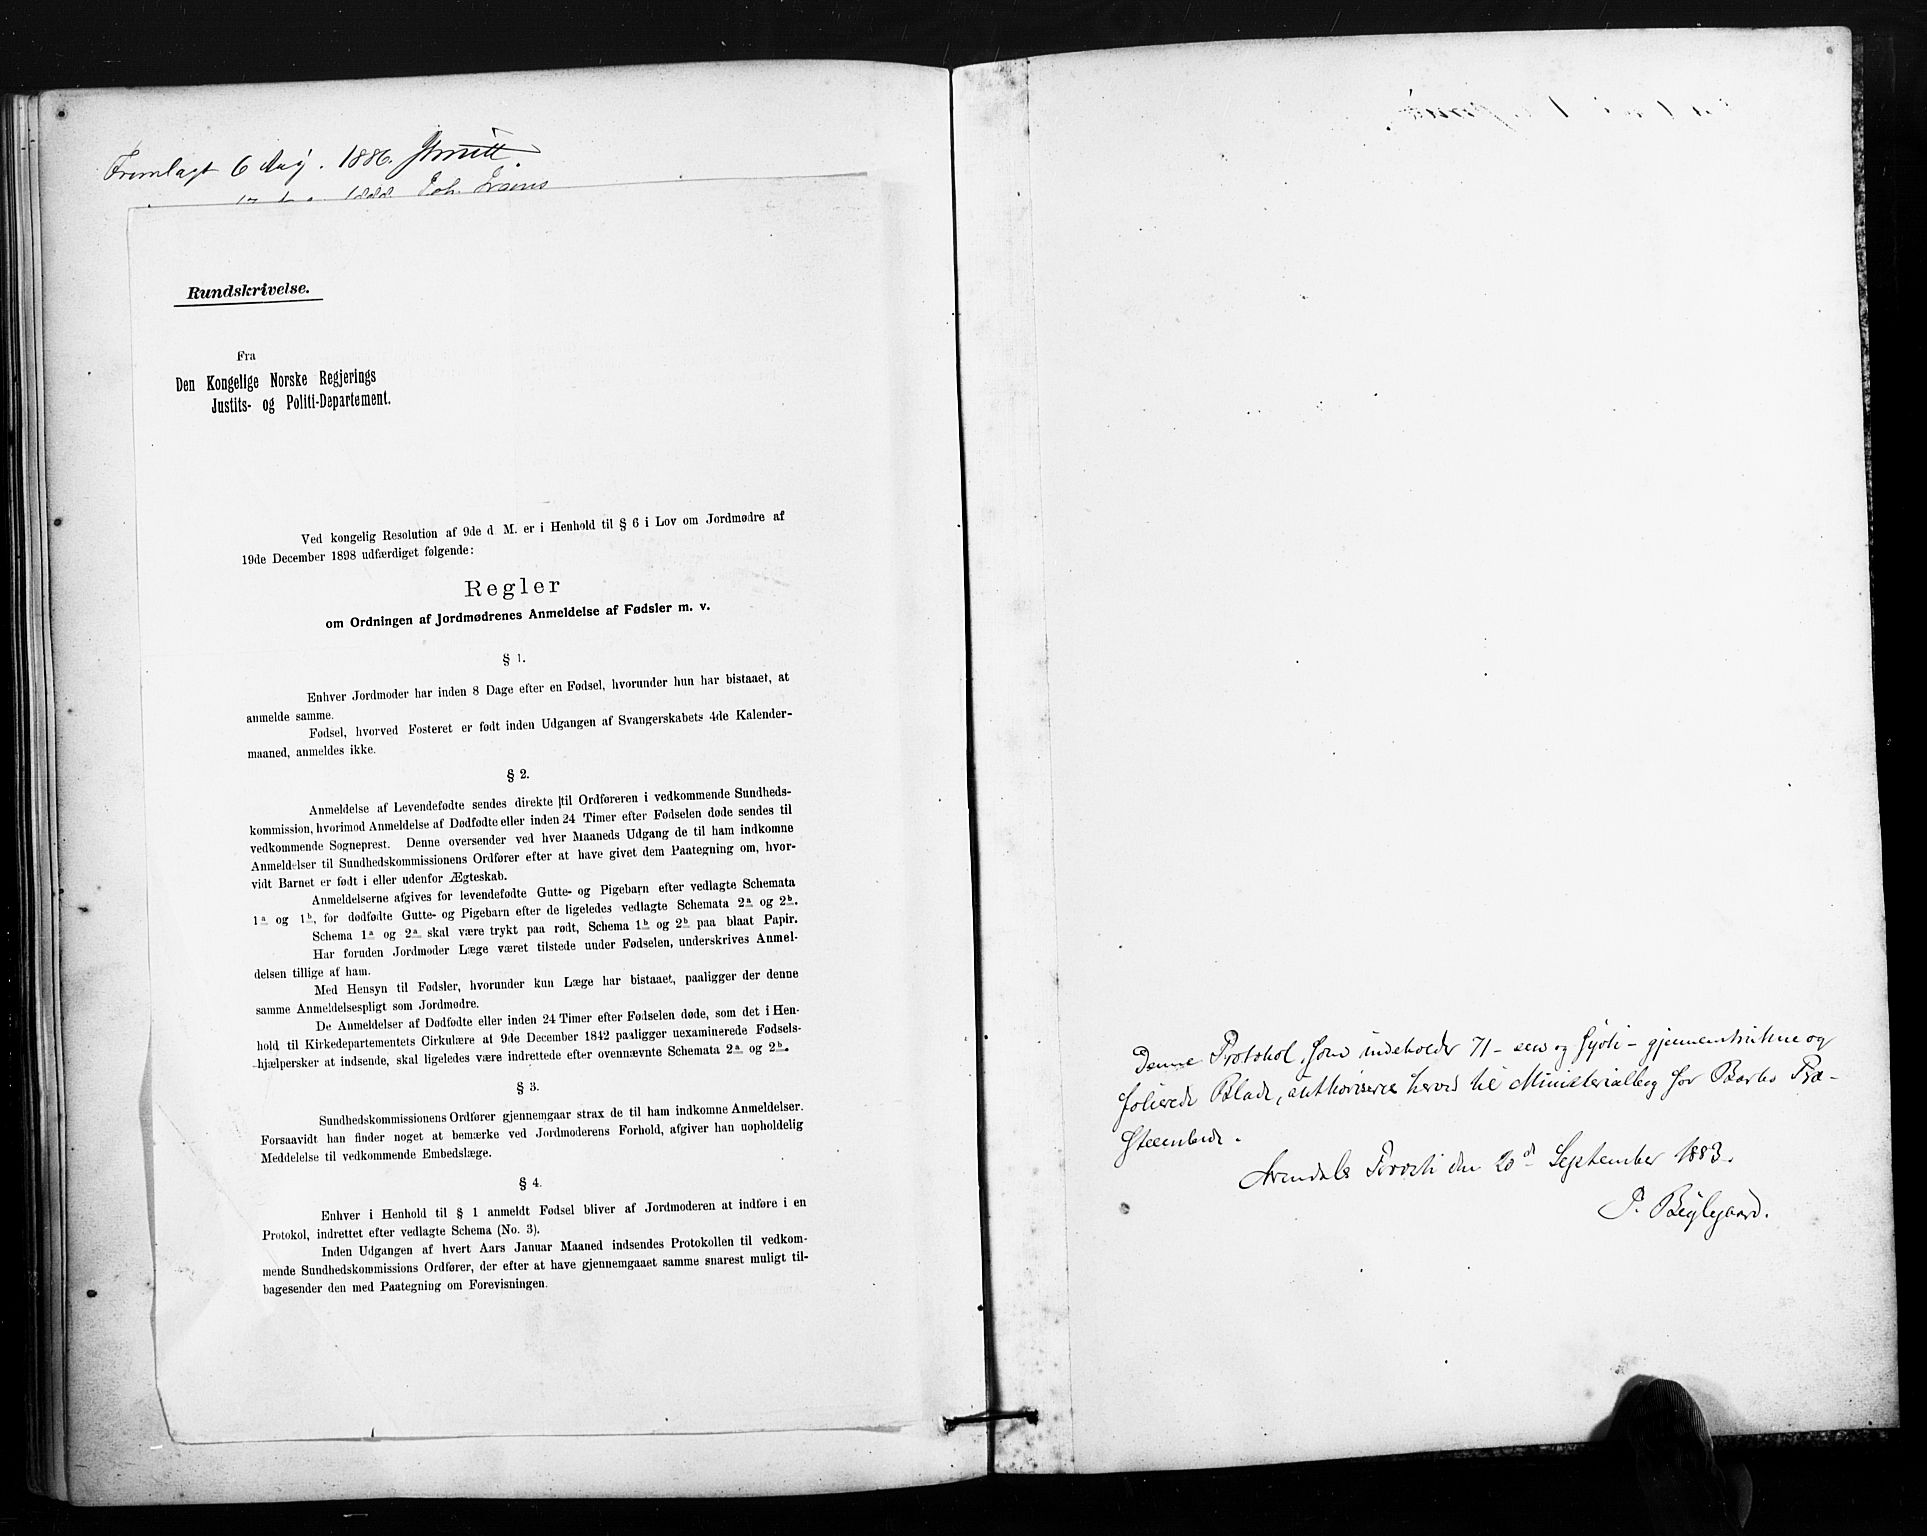 Fremlagt 6 Maj. 1886. Smitt.
1888. Joh. Evens
Rundskrivelse.
Fra
Den Kongelige Norske Regjerings
Justits- og Politi-Departement.
Ved kongelig Resolution af 9de d M. er i Henhold til § 6 i Lov om Jordmødre af
19de December 1898 udfærdiget følgende:
Regler
om Ordningen af Jordmødrenes Anmeldelse af Fødsler m. v.
§ 1.
Enhver Jordmoder har inden 8 Dage efter en Fødsel, hvorunder hun har bistaaet, at
anmelde samme.
Fødsel, hvorved Fosteret er født inden Udgangen af Svangerskabets 4de Kalender-
maaned, anmeldes ikke.
§ 2.
Anmeldelse af Levendefødte sendes direkte til Ordføreren i vedkommende Sundheds-
kommission, hvorimod Anmeldelse af Dødfødte eller inden 24 Timer efter Fødselen døde sendes til
vedkommende Sogneprest. Denne oversender ved hver Maaneds Udgang de til ham indkomne
Anmeldelser til Sundhedskommissionens Ordfører efter at have givet dem Paategning om, hvor-
vidt Barnet er født i eller udenfor Ægteskab.
Anmeldelserne afgives for levendefødte Gutte- og Pigebarn efter vedlagte Schemata
1a og 1b, for dødfødte Gutte- og Pigebarn efter de ligeledes vedlagte Schemata 2a og 2b.
Schema 1a og 2a skal være trykt paa rødt, Schema 1b og 2b paa blaat Papir.
Har foruden Jordmoder Læge været tilstede under Fødselen, underskrives Anmel-
delsen tillige af ham.
Med Hensyn til Fødsler, hvorunder kun Læge har bistaaet, paaligger der denne
samme Anmeldelsespligt som Jordmødre.
De Anmeldelser af Dødfødte eller inden 24 Timer efter Fødselen døde, som det i Hen-
hold til Kirkedepartementets Cirkulære af 9de December 1842 paaligger uexaminerede Fødsels-
hjælpersker at indsende, skal ligeledes være indrettede efter ovennævnte Schemata 2a og 2b.
§ 3.
Sundhedskommissionens Ordfører gjennemgaar strax de til ham indkomne Anmeldelser.
Forsaavidt han finder noget at bemærke ved Jordmoderens Forhold, afgiver han uopholdelig
Meddelelse til vedkommende Embedslæge.
§ 4.
Enhver i Henhold til § 1 anmeldt Fødsel bliver af Jordmoderen at indføre i en
Protokol, indrettet efter vedlagte Schema (No. 3).
Inden Udgangen af hvert Aars Januar Maaned indsendes Protokollen til vedkom-
mende Sundhedskommissions Ordfører, der efter at have gjennemgaaet samme snarest muligt til-
bagesender den med Paategning om Forevisningen.
Denne Protokol, som indeholder 71 - een og sytti - gjennemtrukne og
folierede Blade, authoriseres herved til Ministerialbog for Barbo Præ-
steembede.
Arendals Provsti den 20de September 1883.
P. Bøylegaard.